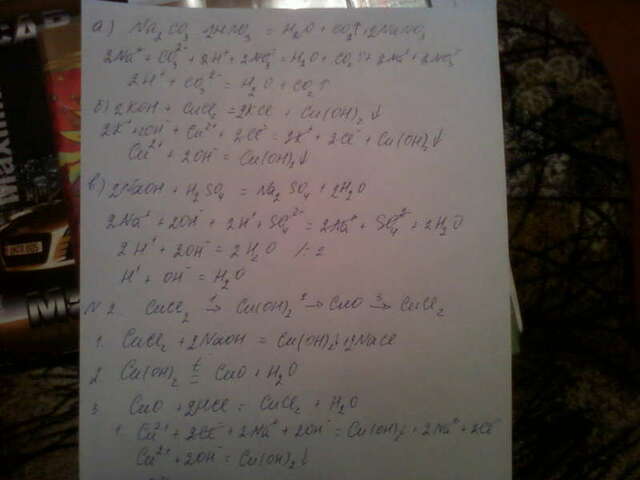 а) Na₂CO₃ 2HNO₃ = H₂O + CO₂↑ + 2NaNO₃
2Na⁺ + CO₃²⁻ + 2H⁺ + 2NO₃⁻ = H₂O + CO₂↑ + 2Na⁺ + 2NO₃⁻
2H⁺ + CO₃²⁻ = H₂O + CO₂↑
б) 2KOH + CuCl₂ = 2KCl + Cu(OH)₂↓
2K⁺ + 2OH⁻ + Cu²⁺ + 2Cl⁻ = 2K⁺ + 2Cl⁻ + Cu(OH)₂↓
Cu²⁺ + 2OH⁻ = Cu(OH)₂↓
в) 2NaOH + H₂SO₄ = Na₂SO₄ + 2H₂O
2Na⁺ + 2OH⁻ + 2H⁺ + SO₄²⁻ = 2Na⁺ + SO₄²⁻ + 2H₂O
2H⁺ + 2OH⁻ = 2H₂O /:2
H⁺ + OH⁻ = H₂O
N 2. CuCl₂ →¹ Cu(OH)₂ →² CuO →³ CuCl₂
1. CuCl₂ + 2NaOH = Cu(OH)₂↓ + 2NaCl
2. Cu(OH)₂ =ᵗ CuO + H₂O
3. CuO + 2HCl = CuCl₂ + H₂O
1. Cu²⁺ + 2Cl⁻ + 2Na⁺ + 2OH⁻ = Cu(OH)₂↓ + 2Na⁺ + 2Cl⁻
Cu²⁺ + 2OH⁻ = Cu(OH)₂↓